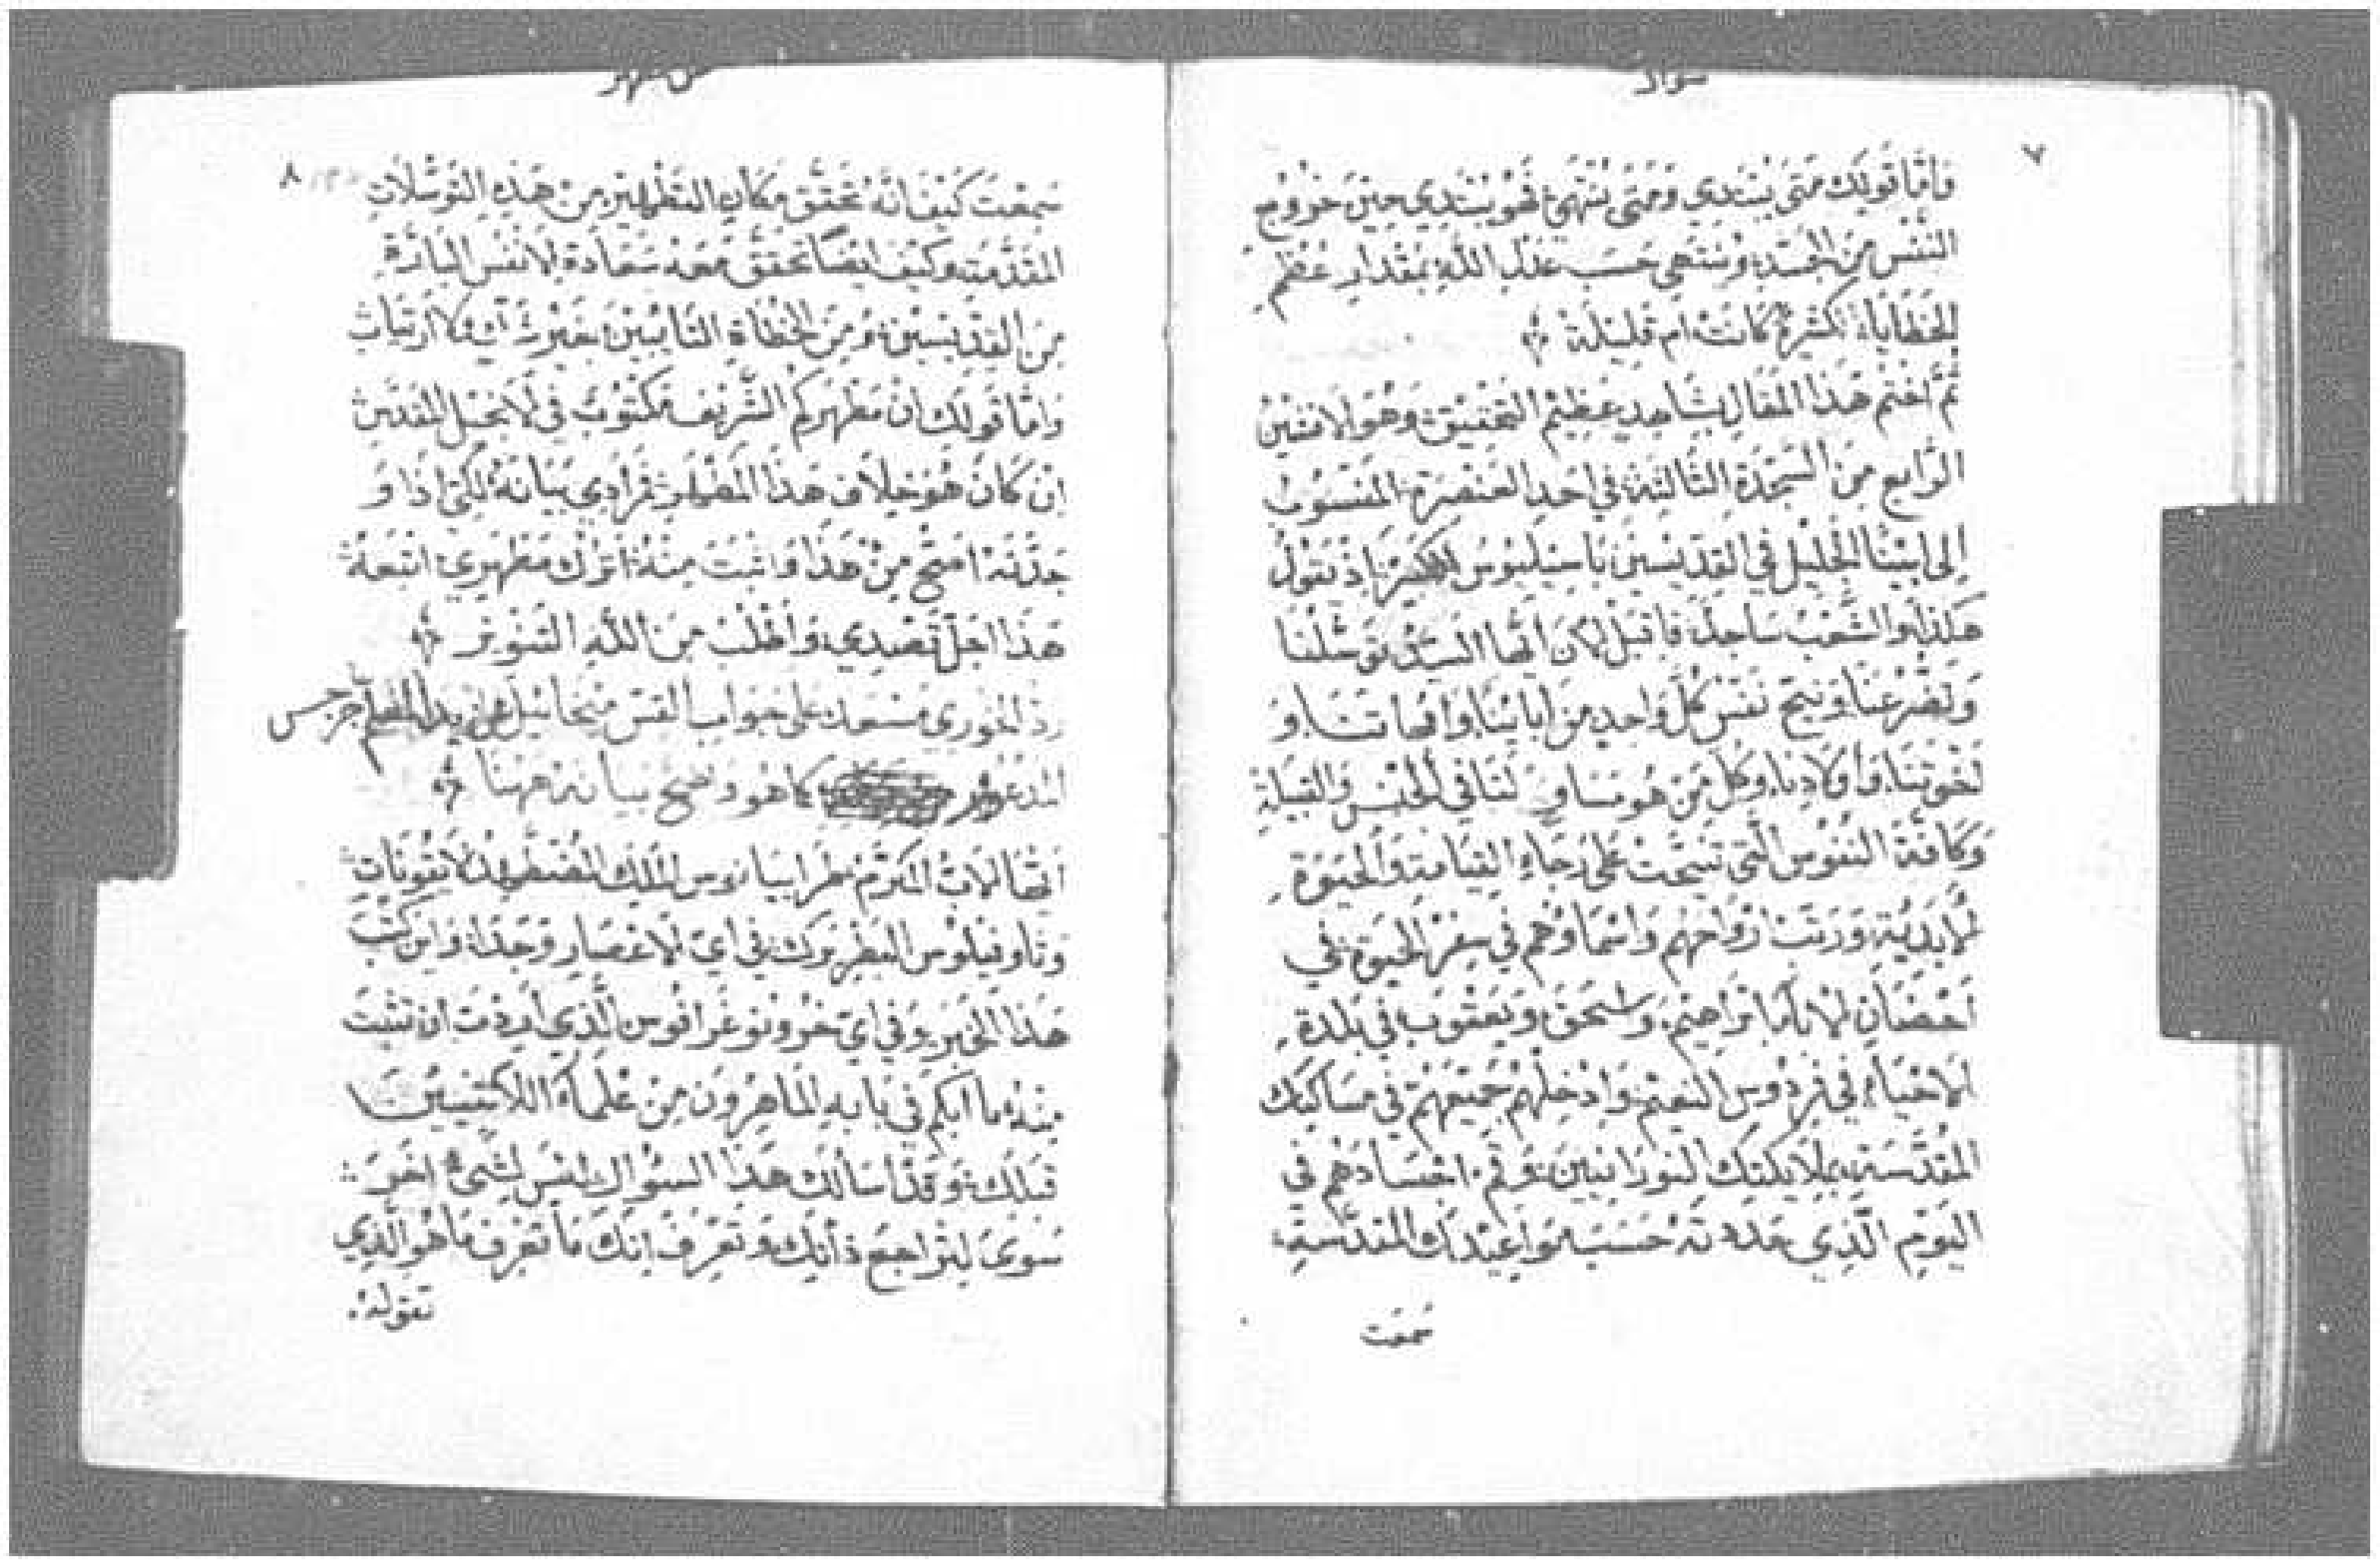 سوال
٧
وَامَّا قَولكَ مَتَى يَبْتَدِي وَمَتَى يَنْتَهِي فَهُو يَبْتَدِي حِيْنَ خرُوج
النَّفْس مِنَ الجَسَدِ وَيَنْتَهِي حَسَب عَدْلِ اللّٰهِ بمقْدَارِ عُظْمِ
الخَطَايَا كثيرة كَانَتْ ام قليلَة
ثمَّ اختم هَذا المقَال بشَاهِدٍ عَظِيْم التَّحْقِيْق وَهُوَ الافشين
الرَّابع مِنَ السَّجدَةِ الثَّالثَةِ في احَد العَنصَرَة المَنسُوبُ
اِلى ابيْنَا الجَليْل في القدِّيسينَ بَاسيليوس الكَبير اذ يَقولُ
هَكذا وَالشَّعْبُ سَاجِدٌ فاقبَلْ لان ايُّها السَّيِّدُ تَوَسُّلنَا
وَتضرُّعنَا وَنيّح نَفسَ كُلّ وَاحِدٍ مِن ابَائِنَا وَامهاتنَا وَ
اخوتنَا وَاوْلَادِنَا وكُلّ مَن هُو مسَاوٍ لنَا في الجنْسِ وَالقَبيلَةِ
وَكَافَّة النّفوسِ الَّتي تَنيَّحَتْ عَلى رَجَاءِ القيَامَةِ وَالحَيوةِ
الابَديَّة وَرَتِّبْ ارْوَاحَهُم وَاسْمَاؤهُم في سِفرِ الحَيوة في
احْضَانِ الابَا ابْرَاهيم وَاسْحَقَ وَيَعقُوب في بلدة
الاحيَاءِ في فِرْدَوسِ النَّعيْم وَادْخِلْهُم جَمِيْعَهُم في مسَاكنِك
المُقدَّسَةِ بملَايكتِك النورَانيينَ وَقم اجْسَادهُم في
اليَومِ الَّذِي حَددتَهُ حَسَبَ مَوَاعيْدكَ المقدَّسَةِ
سمعت
عن مطهر
٨
سَمِعْتَ كيْف انَّهُ تَحَقَّق مكَان التَّطْهير مِنْ هَذِهِ التَّوسُّلَاتِ
المُقَدَّمَةِ وَكَيْفَ ايضًا تحقق مَعَهُ سَعَادة الانفُس البَارَّة
مِنَ القِدِّيسِينَ وَمِنَ الخُطَاةِ التَّائِبيْنَ بغير شَكٍّ وَلا ارتيابٍ
وَامَّا قَولكَ ان مَطهَركم الشَّريف مَكْتُوبٌ في الانجيْل المُقدَّس
ان كانَ هُو خلاف هَذا المَطهَر فمُرَادي بيَانهُ لكي اذا وَ
جَدْتُهُ اصَحّ مِن هَذا وَاثبت مِنْهُ اترُك مَطهَري اتبعهُ
هَذا اجَلّ قَصْدِي وَاطْلب مِنَ اللّٰهِ التنوير
رد الخوري مسعد على جوَاب القس ميخائيل من يد المعلم جرجس
المدعو كما هُو وَاضح بيَانهُ هَهُنَا
ايُّهَا الابُ المكرَّم طرابيانوس الملك المُضْطَهِد الايقونات
وَثاوفيلوس البَطريرك في اي الاعصَارِ وُجدَا وَاين كُتبَ
هَذا الخبَر وَفي اي خرونوغرافوس الَّذي ارَدْتَ ان تثبت
مِنْهُ ما ابكم في بَابهِ المَاهِرُونَ مِنْ عُلمَاء اللاتينيينَ
قبلك وَقد اسَألك هَذا السُؤال ليسَ لشَيءٍ اخَرَ
سَوى لتراجع ذاتِك وَتعرف انك مَا تَعْرف ما هُو الَّذِي
تقولهُ